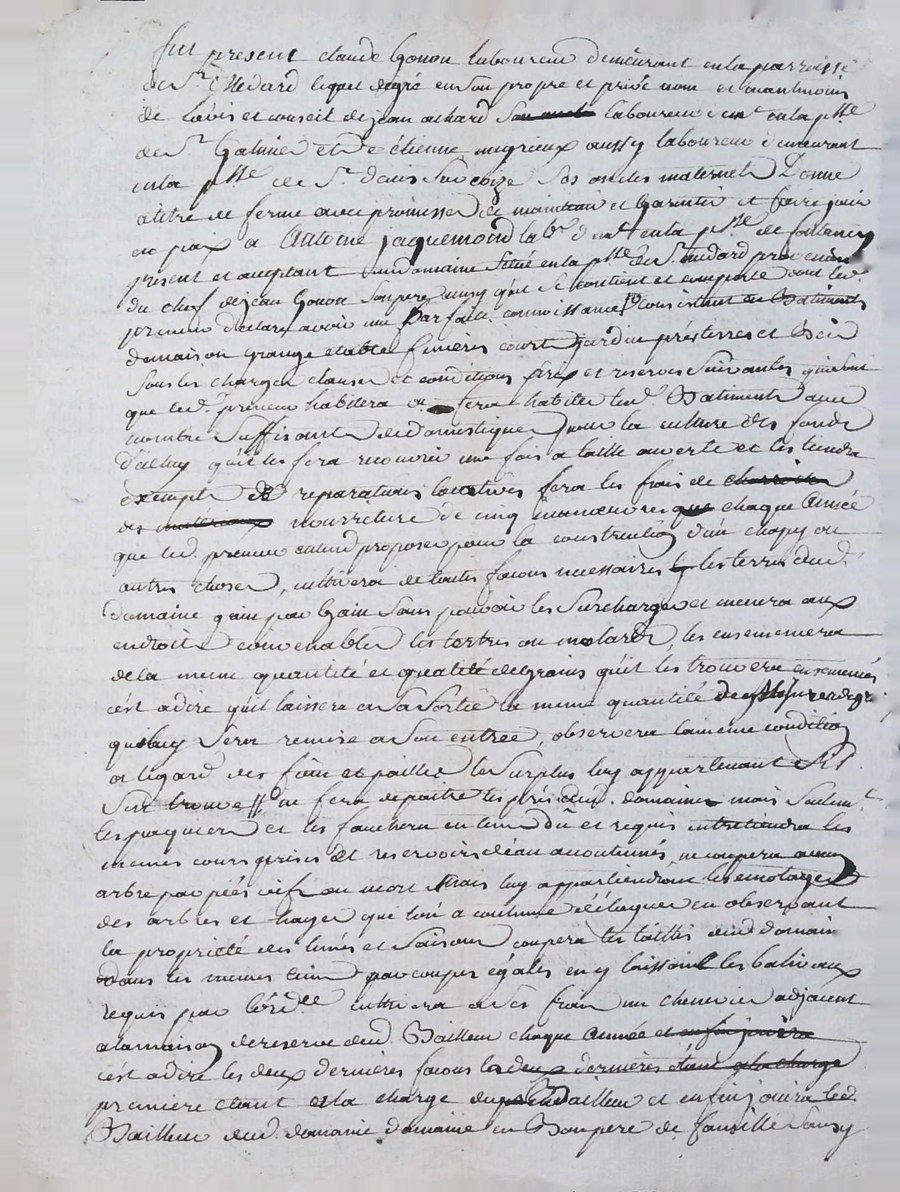 fut present claude Gonon laboureur demeurant en la parroisse
de St Medard lequel de gré en son propre et privé nom et neantmoins
de l'avis et conseil de jean achard son oncle laboureur demt en la psse
de St Galmier et de étienne aussy laboureur demeurant
en la psse de St denis sur coize ses oncles maternels Donne
a titre de ferme avec promesse de maintenir et Garentir et faire jouir
en paix a Antoine jaquemond labr demt en la psse de
present et acceptant un domaine situé en la psse de St medard provenant
du chef de jean Gonon son pere ainsy qu'il se contient et comporte dont led.
preneur declare avoir une parfaite connoissance consistant en Batiments
de maison Grange etable court jardin prés terres et bois
sous les charges clauses et conditions prix et reserves suivantes qui sont
que led. preneur habitera ou fera habiter led. Batiments avec
nombre suffisant de domestiques pour la culture des fonds
d'iceluy qu'il les fera recouvrir une fois a taille ouverte et les tiendra
exempts de reparations locatives fera les frais de
des materiaux nourriture de cinq manoeuvres que chaque Année
que led. preneur entend proposer pour la construction d'un chapy ou
autres choses, cultivera de toutes facons necessaires les terres dud.
domaine Gain par Gain sans pouvoir les surcharger et menera aux
endroits convenables les tertres ou molards, les ensemencera
de la meme quantité et qualité de grains qu'il les trouvera ensemencés
c'est a dire qu'il laissera en sa sortie la meme quantité de
que luy sera remise a son entrée, observera la meme condition
a l'egard des foin et pailles le surplus luy appartenant s'il
s'en trouve ne fera depaitre les prés dud. domaine mais seulemt.
les paquiers et les fauchera en tems dû et requis entretiendra les
memes cours prises et reservoirs d'eau accoutumés, ne coupera aucun
arbre par pied vif ou mort Mais luy appartiendront les emotages
des arbres et hayes que l'on a coutume d'élaguer en observant
la propriété des lunes et saisons coupera les taillis dud. domaine
dans les memes tems par coupes égales en y laissant les balivaux
requis par l'ordce cultivera a ses frais un chenevier adjacent
a la maison de reserve dud. Bailleur chaque Année et enfin jouira
c'est a dire les deux dernières facons les deux dernières étant a la charge
premiere etant a la charge dud Bailleur et enfin jouira led.
Bailleur dud. domaine domaine en Bon pere de famille sans y